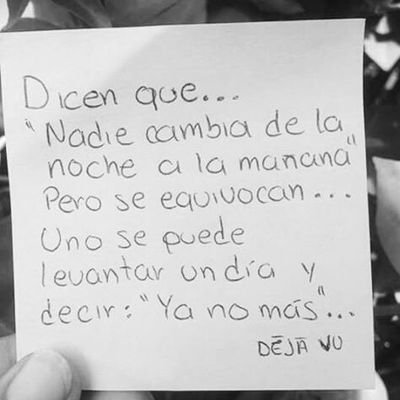 Dicen que...
"Nadie cambia de la
noche a la mañana"
Pero se equivocan...
Uno se puede
levantar un día y
decir: "Ya no más"...
DĒJĀ VU